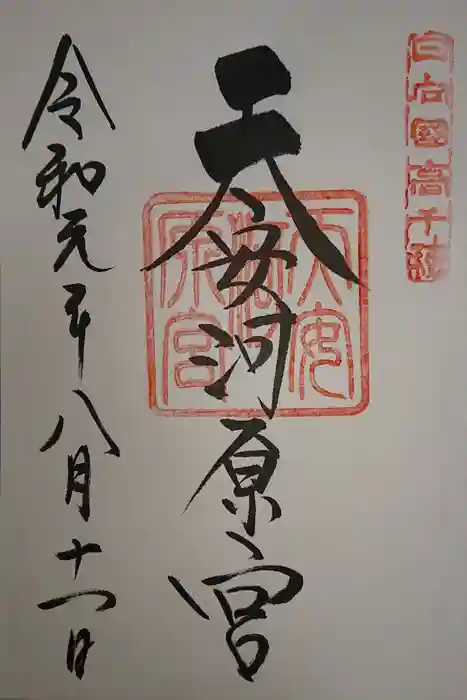 日向国高千穂
天安河原宮
天安河原宮
令和元年八月十一日